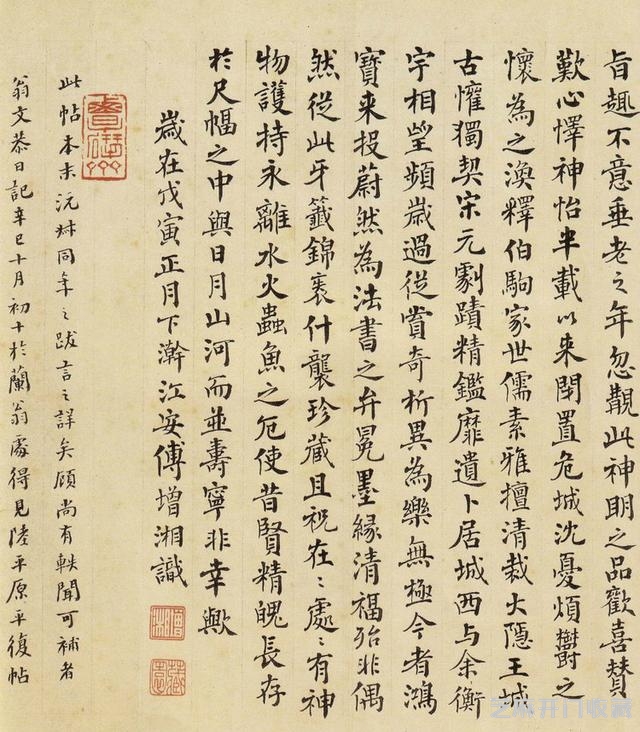 旨趣不意垂老之年忽覯此神明之品歡喜贊
歎心懌神怡半載以來閉置危城沈憂煩鬱之
懷為之渙釋伯駒家世儒素雅擅清裁大隱王城
古懽獨契宋元劇蹟精鑑靡遺卜居城西与余衡
宇相望頻歲過從賞奇析異為樂無極今者鴻
寶来投蔚然為法書之弁冕墨緣清福殆非偶
然從此牙籤錦裹什襲珍藏且祝在在處處有神
物護持永離水火蟲魚之厄使昔賢精魄長存
於尺幅之中與日月山河而並壽寧非幸歟
歲在戊寅正月下澣江安傅增湘識
此帖本末沅叔同年之跋言之詳矣顧尚有軼聞可補者
翁文恭日記辛巳十月初十於蘭翁處得見陸平原平復帖
芝麻开门收藏